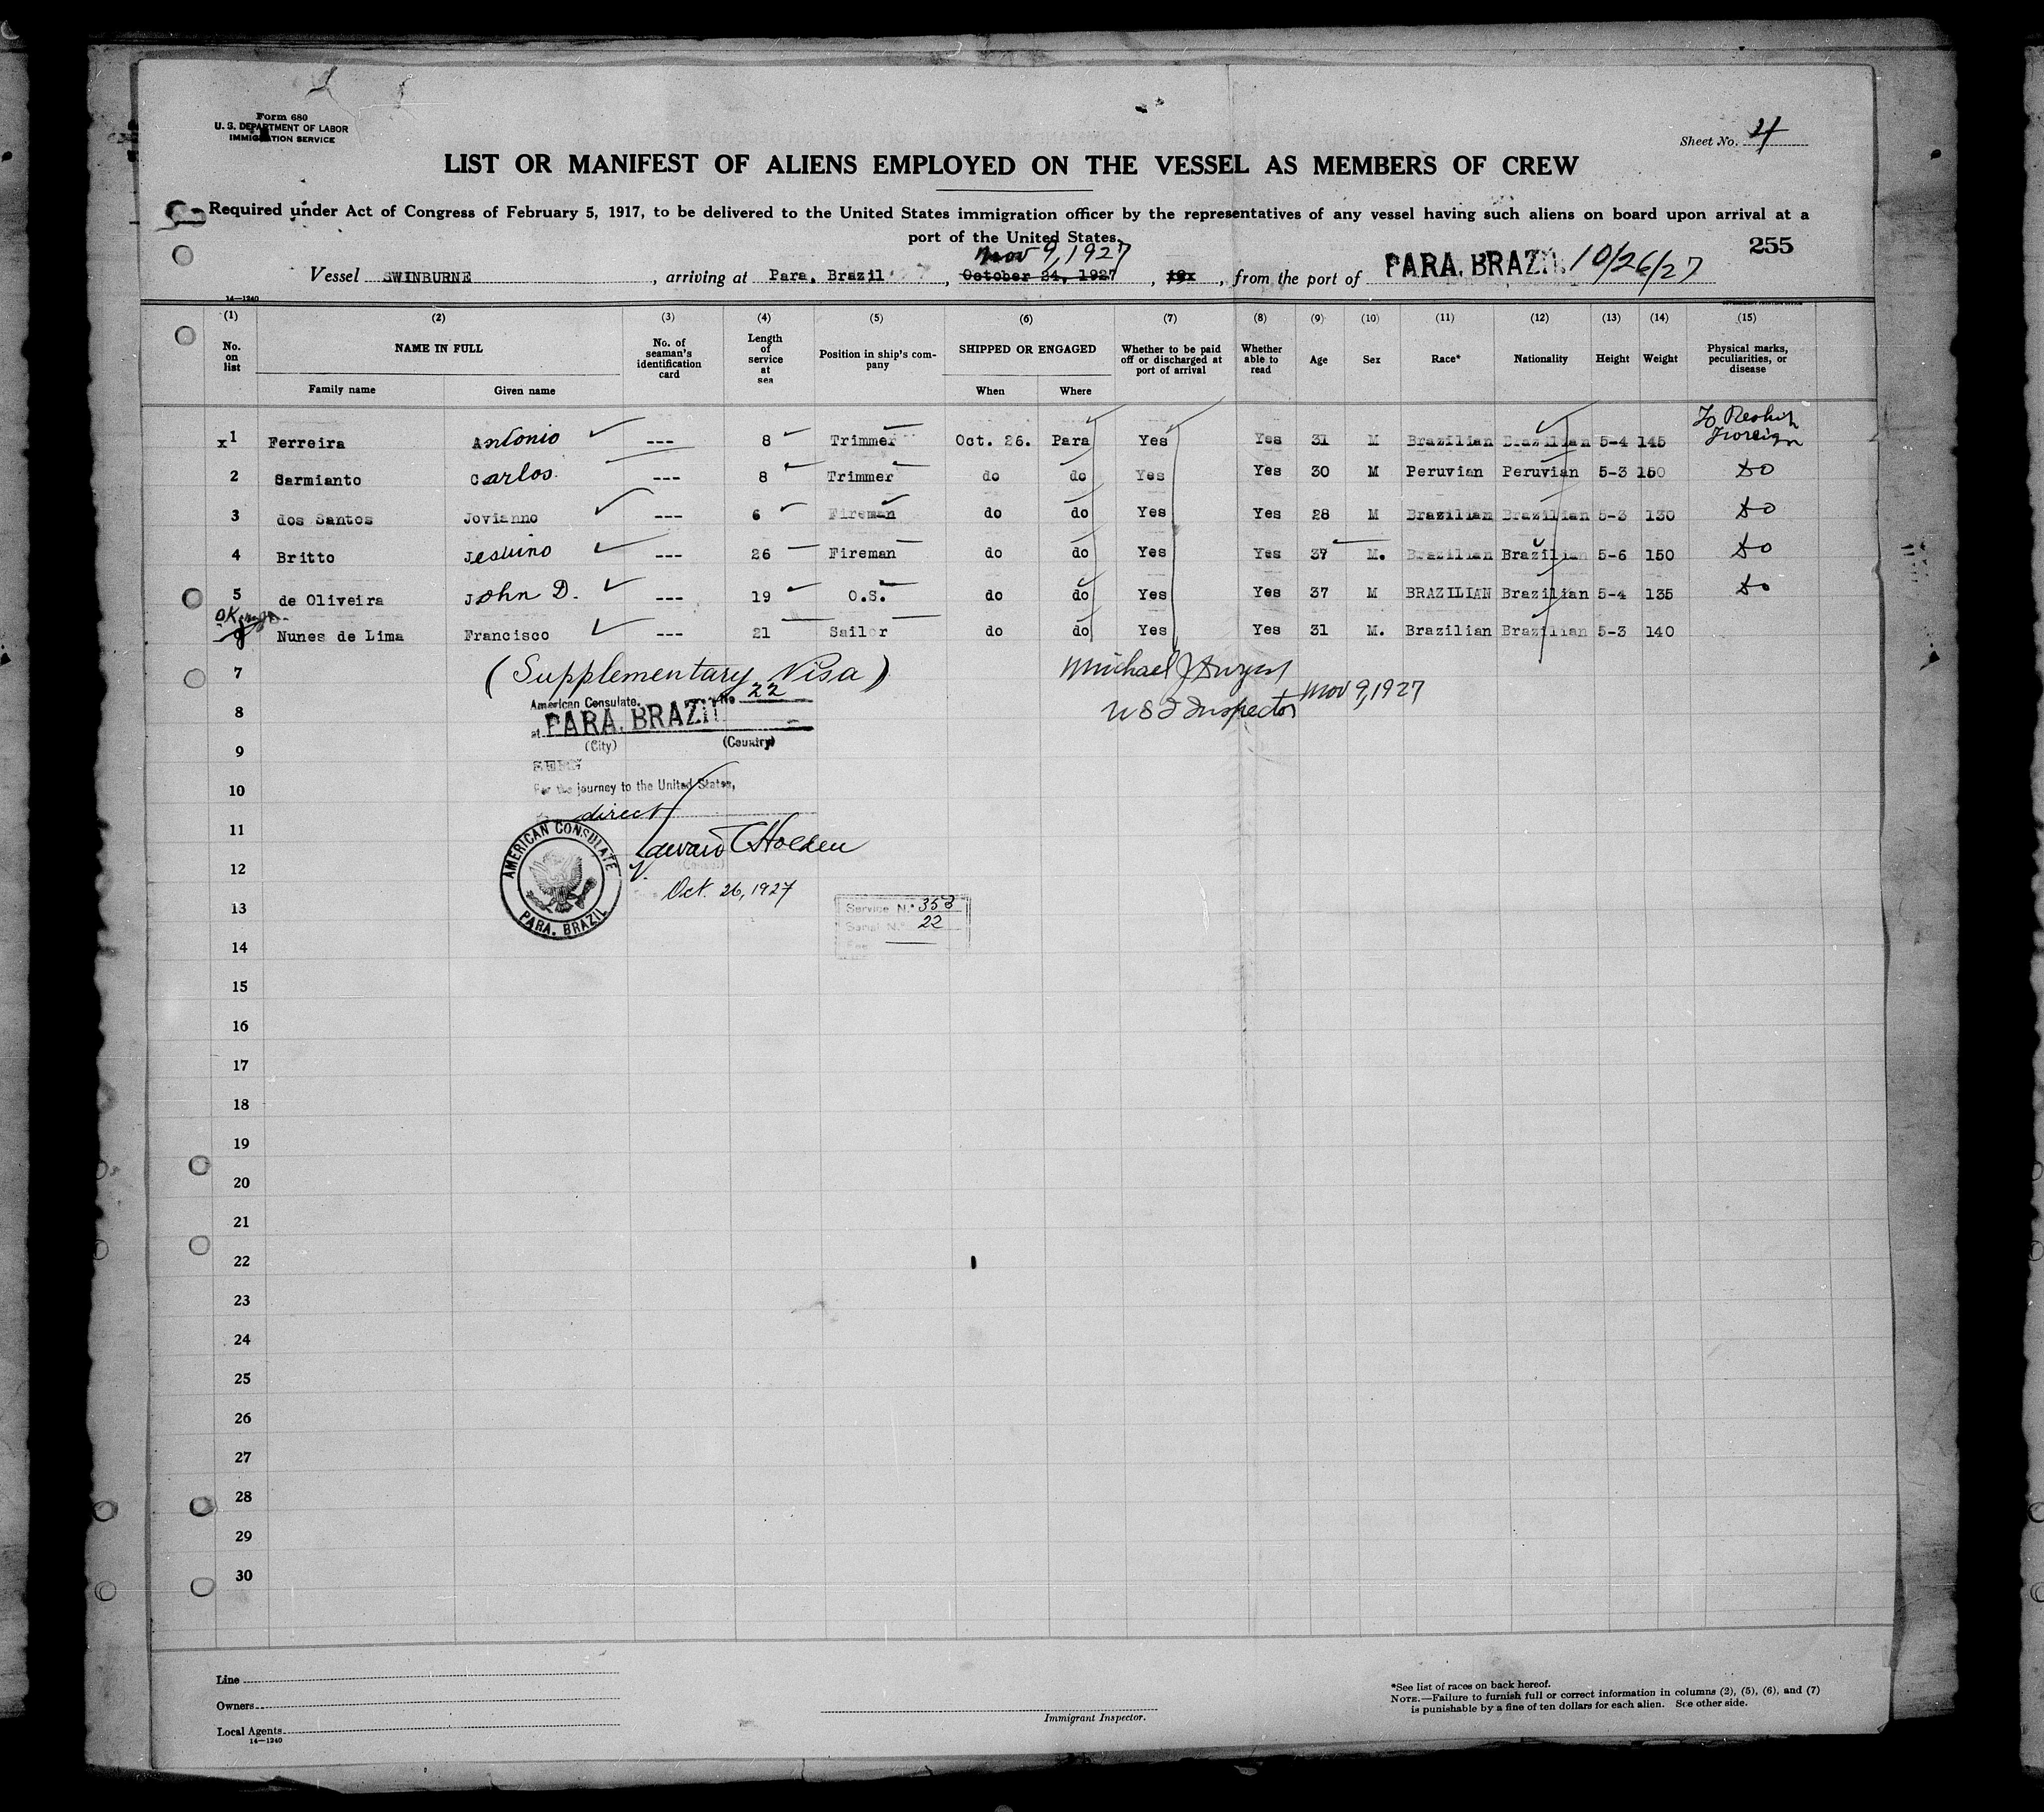 Form 680
U. S. DEPARTMENT OF LABOR
IMMIGRATION SERVICE
Sheet No. 4
LIST OR MANIFEST OF ALIENS EMPLOYED ON THE VESSEL AS MEMBERS OF CREW
Required under Act of Congress of February 5, 1917, to be delivered to the United States immigration officer by the representatives of any vessel having such aliens on board upon arrival at a
port of the United States.
255
Nov 9, 1927
Vessel SWINBURNE, arriving at Para, Brazil, October 24, 1927, 19x, from the port of PARA, BRAZIL. 10/26/27
14—1240
(1) (2) (3) (4) (5) (6) (7) (8) (9) (10) (11) (12) (13) (14) (15)
No. on list NAME IN FULL No. of seaman's identification card Length of service at sea Position in ship's company SHIPPED OR ENGAGED Whether to be paid off or discharged at port of arrival Whether able to read Age Sex Race* Nationality Height Weight Physical marks, peculiarities, or disease
Family name Given name When Where
To Reship
Foreign
x1 Ferreira Antonio --- 8 Trimmer Oct. 26. Para Yes Yes 31 M Brazilian Brazilian 5-4 145
2 Sarmianto Carlos --- 8 Trimmer do do Yes Yes 30 M Peruvian Peruvian 5-3 150 do
3 dos Santos Jovianno --- 6 Fireman do do Yes Yes 28 M Brazilian Brazilian 5-3 130 do
4 Britto Jesuino --- 26 Fireman do do Yes Yes 37 M. Brazilian Brazilian 5-6 150 do
5 de Oliveira John D. --- 19 O.S. do do Yes Yes 37 M BRAZILIAN Brazilian 5-4 135 do
OK
6 Nunes de Lima Francisco --- 21 Sailor do do Yes Yes 31 M. Brazilian Brazilian 5-3 140
7 (Supplementary Visa) Michael J
American Consulate, No 22 Nov 9, 1927
8 at PARA, BRAZIL U S I Inspector
(City) (Country)
9
For the journey to the United States,
10
direct
11 Edward C Holden
AMERICAN CONSULATE
PARA, BRAZIL
12
V.
(Consul)
Oct. 26, 1927
13 Service N.º 353
Serial N.º 22
14 Fee
15
16
17
18
19
20
21
22
23
24
25
26
27
28
29
30
Line
Owners
Local Agents
14—1240
Immigrant Inspector.
*See list of races on back hereof.
NOTE.—Failure to furnish full or correct information in columns (2), (5), (6), and (7)
is punishable by a fine of ten dollars for each alien. See other side.